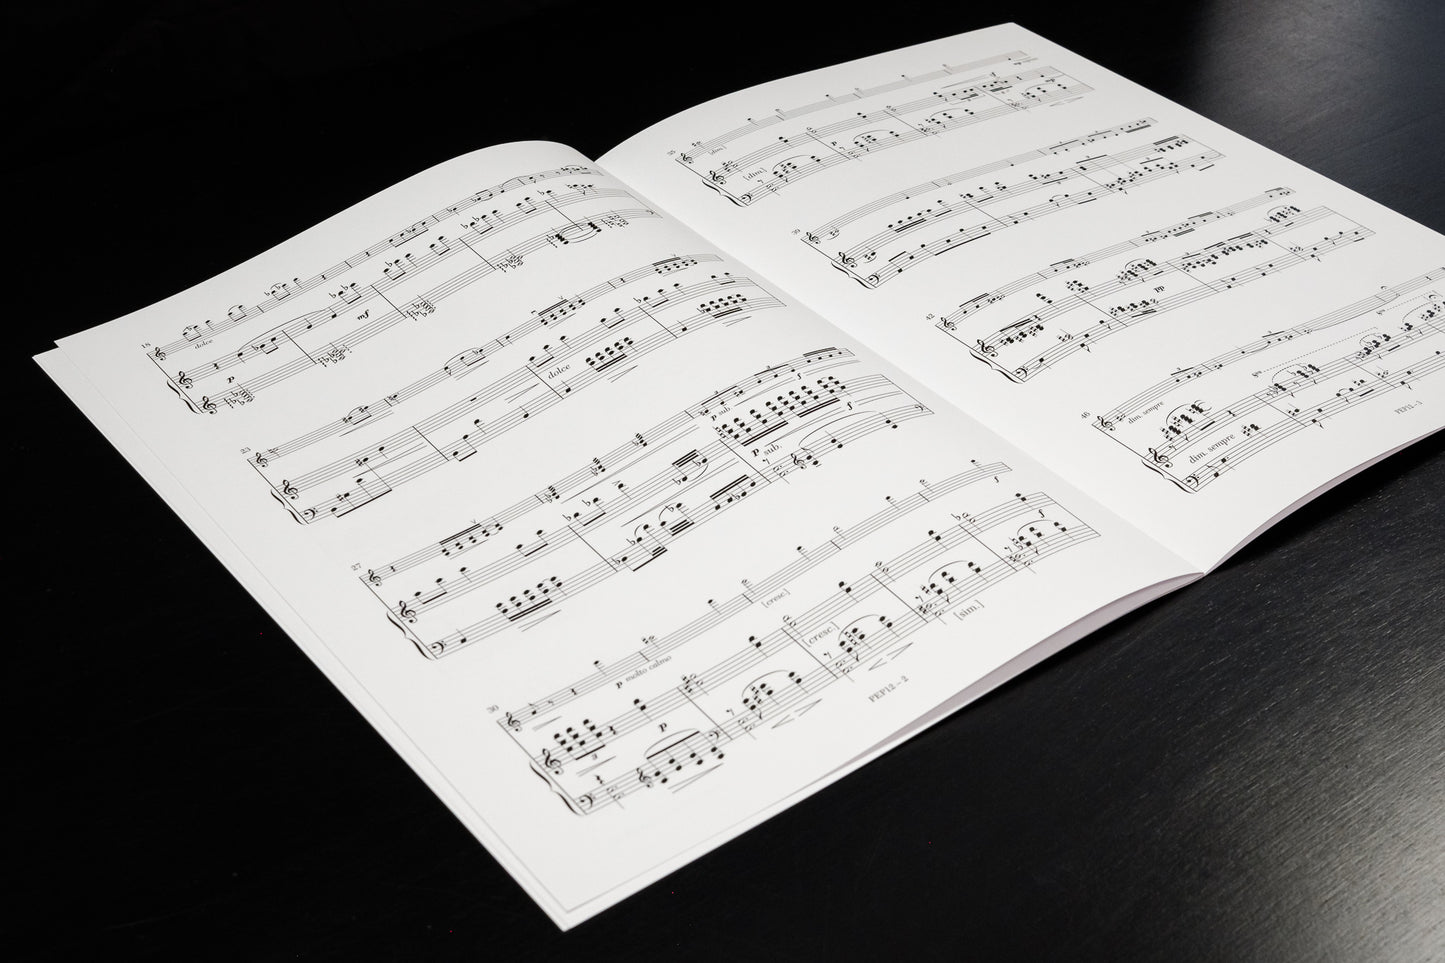 18
dolce
p
mf
23
dolce
27
p sub.
f
p sub.
f
30
p molto calmo
[cresc.]
f
3
p
[cresc.]
f
[sim.]
PEP12 – 2
35
[dim.]
f
mp
[dim.]
p
mp
39
42
pp
46
dim. sempre
8va
dim. sempre
8va
PEP12 – 3